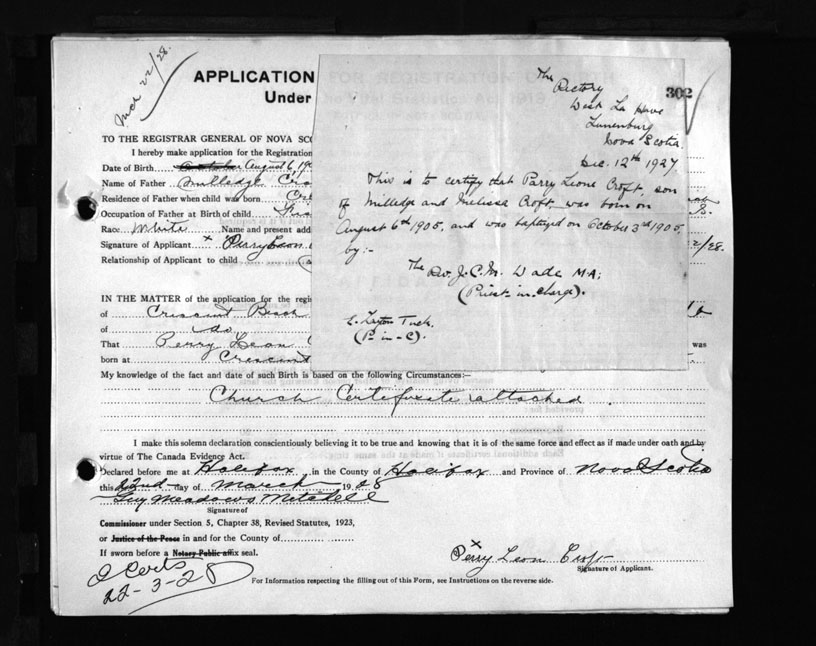 Mch 22/28.
APPLICATION FOR REGISTRATION
Under
302
The Rectory
West La Have
Lunenburg
Nova Scotia.
Dec. 12th 1927.
This is to certify that Parry Leone Croft, son
of Milledge and Melissa Croft, was born on
August 6th 1905, and was baptized on October 3rd 1905,
by:-
The Rev. J. C. M. Wade M.A;
(Priest-in-charge).
E. Layton Tuck.
(P-in-C).
TO THE REGISTRAR GENERAL OF NOVA SCO
I hereby make application for the Registration
Date of Birth August 6, 19
Name of Father Milledge Cro
Residence of Father when child was born Cre
Occupation of Father at Birth of child
Race White Name and present add
Signature of Applicant x Perry Leon
2/28.
Relationship of Applicant to child
IN THE MATTER of the application for the regi
of Crescent Beach
of do
That Perry Leon was
born at Crescent
My knowledge of the fact and date of such Birth is based on the following Circumstances:—
Church Certificate attached.
I make this solemn declaration conscientiously believing it to be true and knowing that it is of the same force and effect as if made under oath and by
virtue of The Canada Evidence Act.
Declared before me at Halifax in the County of Halifax and Province of Nova Scotia
this 22nd day of March 1928
Guy Meadows Mitchell
Signature of
Commissioner under Section 5, Chapter 38, Revised Statutes, 1923,
or Justice of the Peace in and for the County of
If sworn before a Notary Public affix seal.
x Perry Leon Croft
Signature of Applicant.
2 Certs
22-3-28
For Information respecting the filling out of this Form, see Instructions on the reverse side.